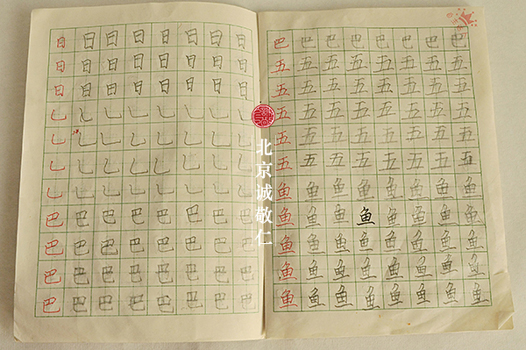 日日日日日日日日
日日日日日日日日
日日日日日日日日
乚乚乚乚乚乚乚乚
乚乚乚乚乚乚乚乚
乚乚乚乚乚乚乚乚
乚乚乚乚乚乚乚乚
巴巴巴巴巴巴巴巴
巴巴巴巴巴巴巴巴
巴巴巴巴巴巴巴巴
巴巴巴巴巴巴巴巴
北京诚敬仁
巴巴巴巴巴巴巴巴
五五五五五五五五
五五五五五五五五
五五五五五五五五
五五五五五五五五
五五五五五五五五
鱼鱼鱼鱼鱼鱼鱼鱼
鱼鱼鱼鱼鱼鱼鱼鱼
鱼鱼鱼鱼鱼鱼鱼鱼
鱼鱼鱼鱼鱼鱼鱼鱼
鱼鱼鱼鱼鱼鱼鱼鱼